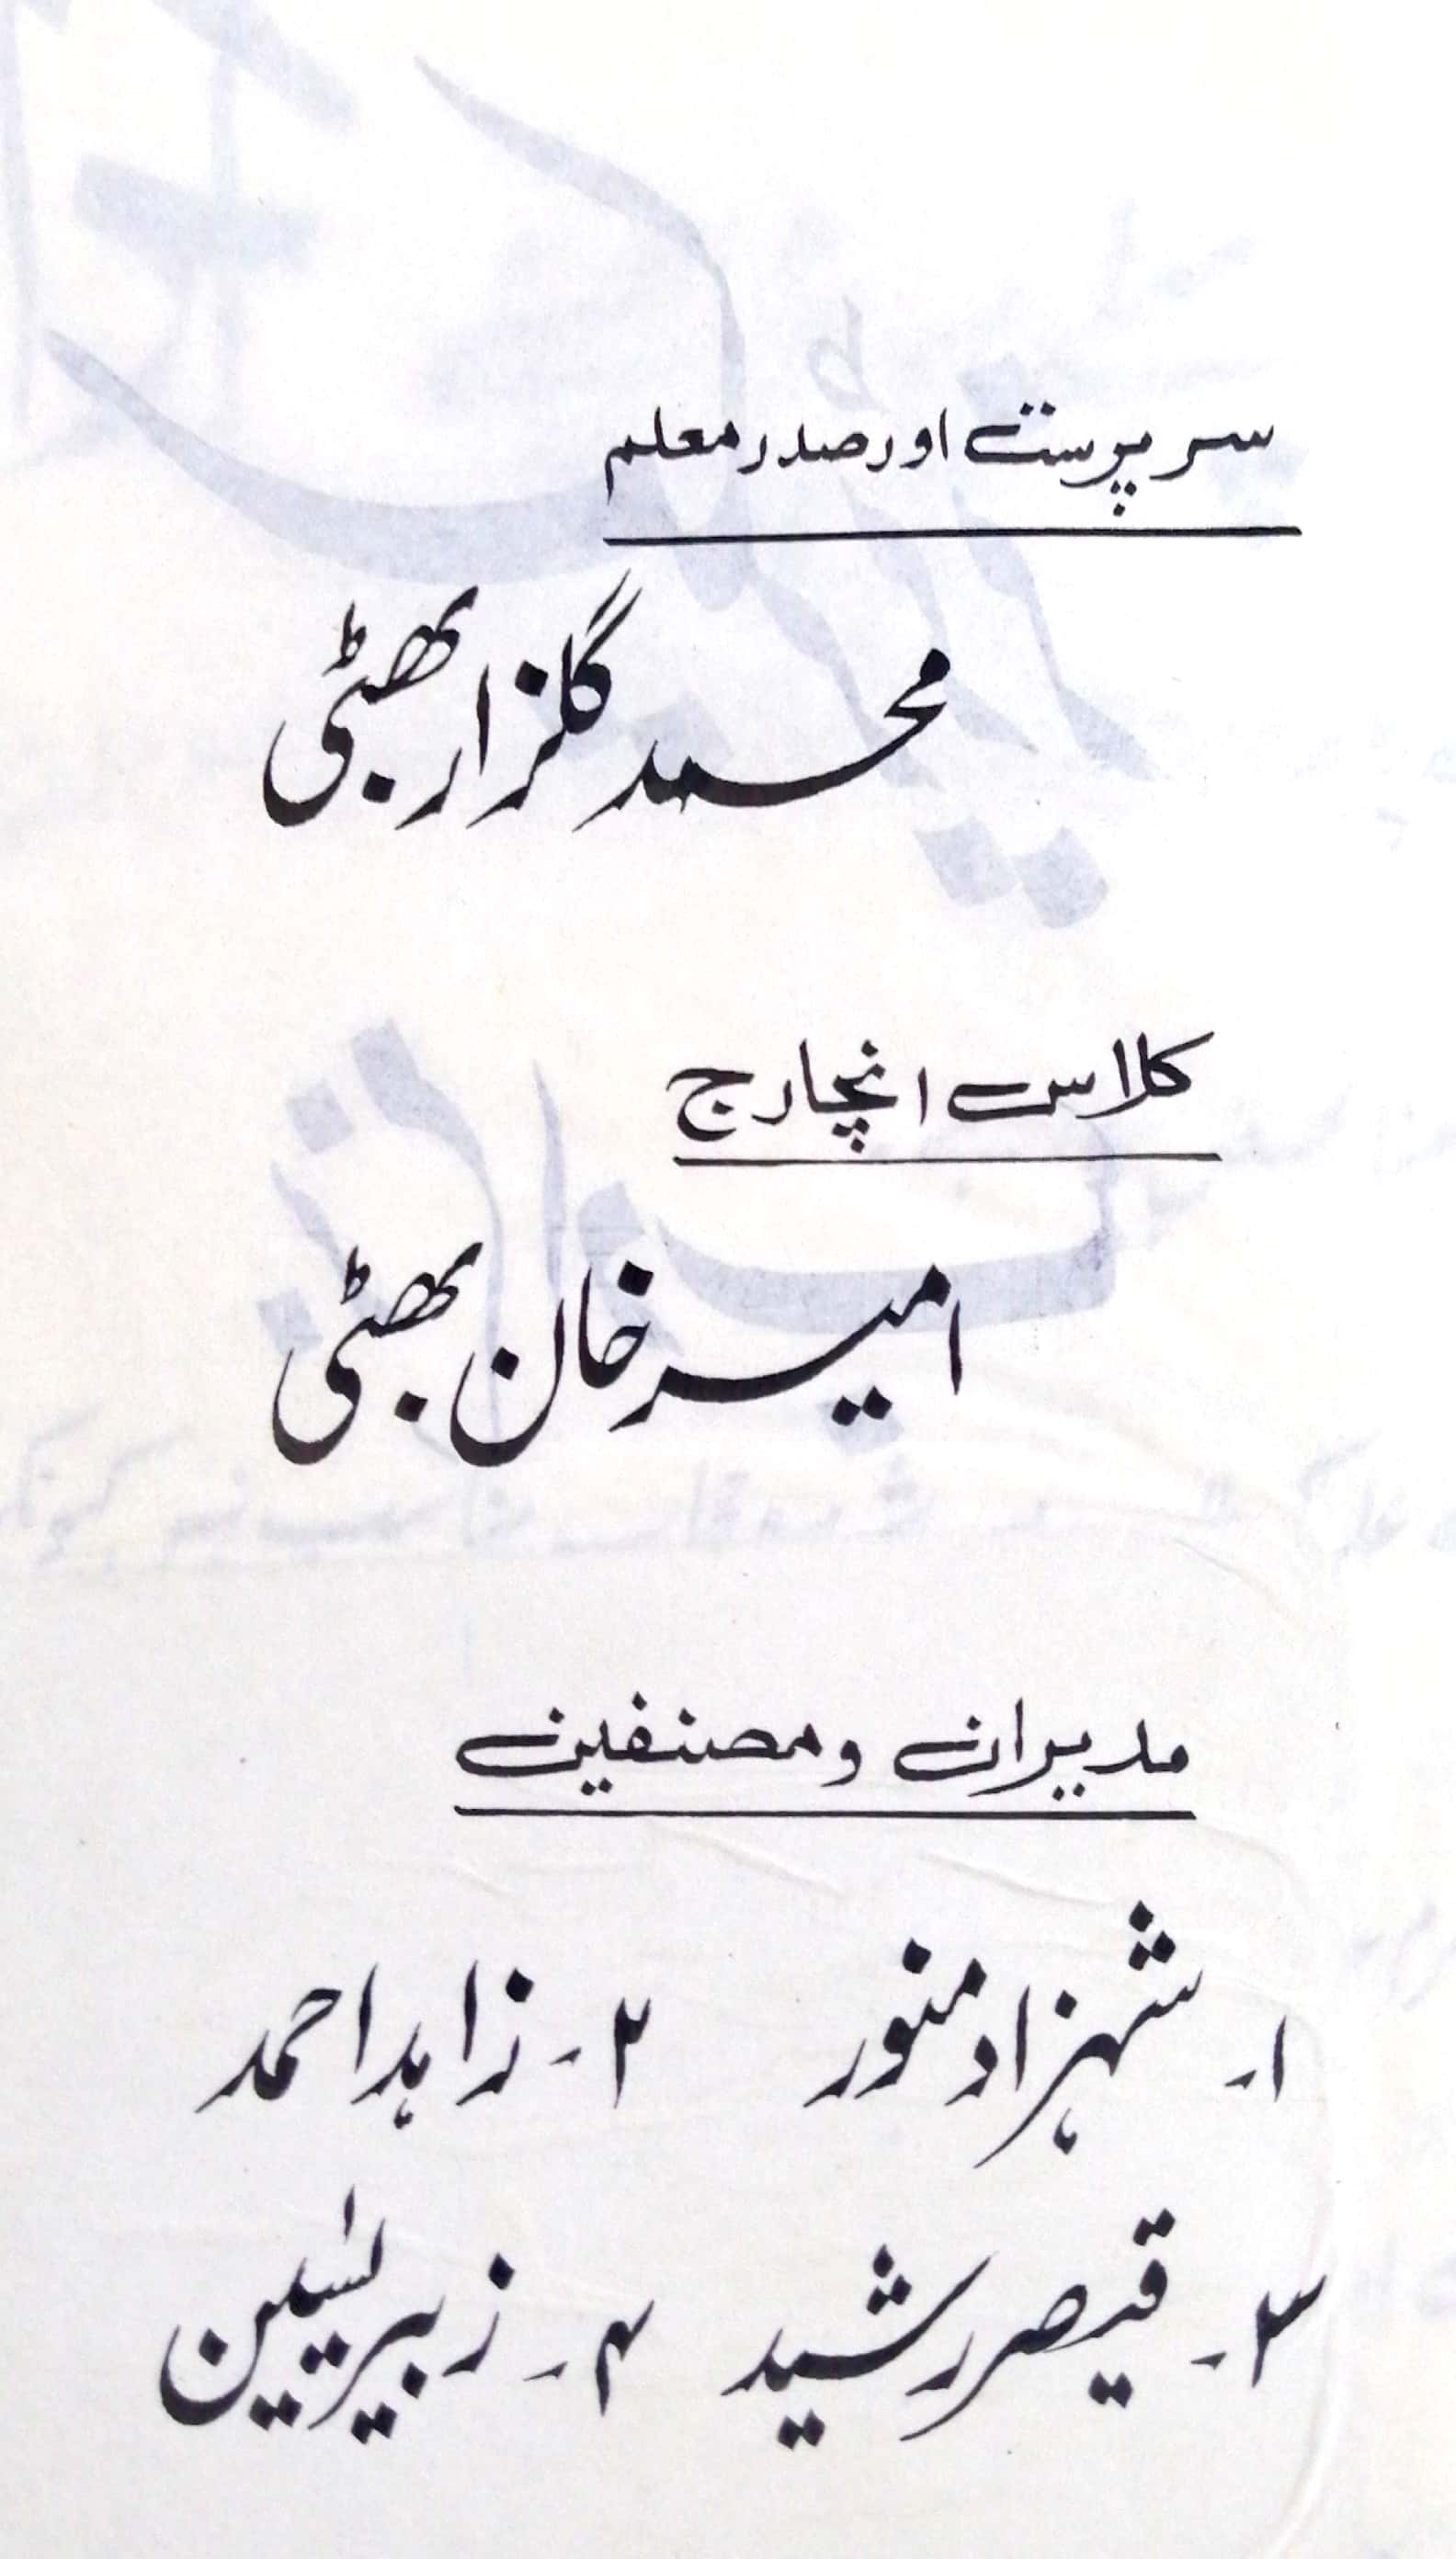 سرپرست اور صدر معلم
محمد گلزار بھٹی
کلاس انچارج
امیر خان بھٹی
مدیران و مصنفین
۱۔ شہزاد منور ۲۔ زاہد احمد
۳۔ قیصر رشید ۴۔ زبیر یٰسین